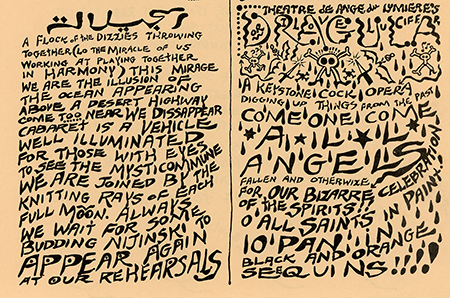 A FLOCK of the DIZZIES THROWING
TOGETHER (LO THE MIRACLE OF US
WORKING AT PLAYING TOGETHER
IN HARMONY) THIS MIRAGE
WE ARE THE ILLUSION OF
THE OCEAN APPEARING
ABOVE A DESERT HIGHWAY
COME TOO NEAR WE DISSAPPEAR
CABARET IS A VEHICLE
WELL ILLUMINATED
FOR THOSE WITH EYES
TO SEE THE MYSTICOMMUNE
WE ARE JOINED BY THE
KNITTING RAYS OF EACH
FULL MOON. ALWAYS
WE WAIT FOR SOME
BUDDING NIJINSKI TO
APPEAR AGAIN
AT OUR REHEARSALS
THEATRE de ANGE du LUMIERES
A KEYSTONE COCK OPERA
DIGGING UP THINGS FROM THE PAST
COME ONE COME
A L L
ANGELS
FALLEN AND OTHERWIZE
FOR OUR BIZARRE CELEBRATION
OF THE SPIRITS!!
O' ALL SAINTS IN PAINT!
IO PAN IN
BLACK AND ORANGE
SEEQUINS!!!!